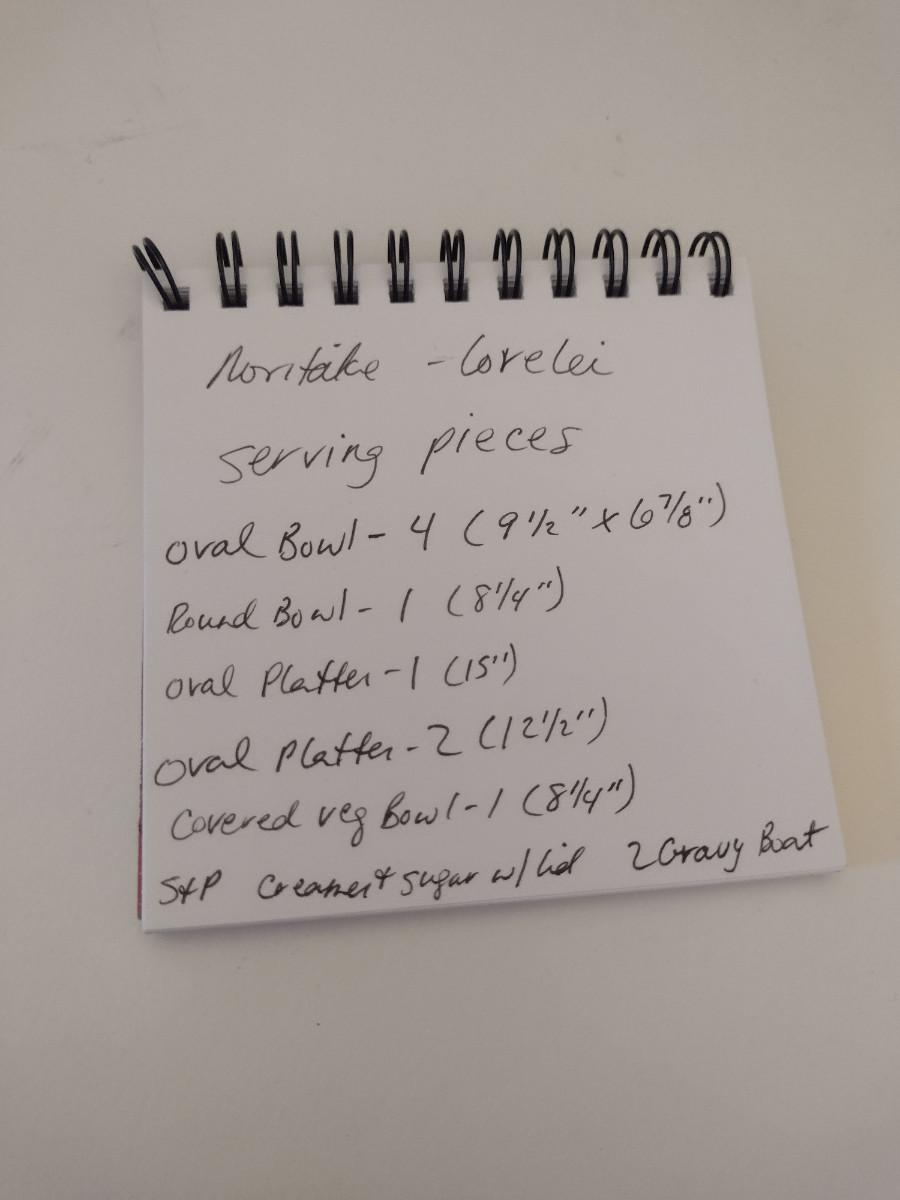 Noritake - Lorelei
serving pieces
Oval Bowl - 4 (9 1/2" x 6 7/8")
Round Bowl - 1 (8 1/4")
Oval Platter - 1 (15")
Oval Platter - 2 (12 1/2")
Covered veg Bowl - 1 (8 1/4")
S+P Creamer + sugar w/ lid 2 Gravy Boat